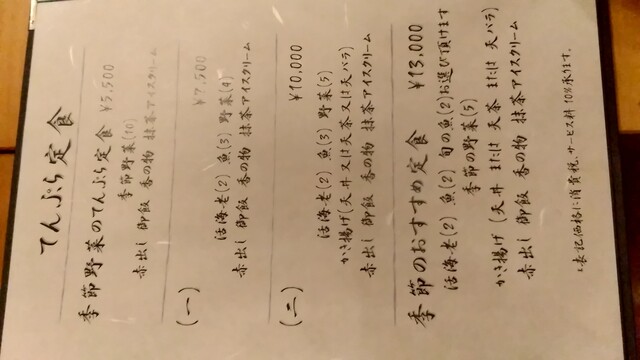 てんぷら定食
季節野菜のてんぷら定食 ¥5,500
季節野菜(10)
赤出し 御飯 香の物 抹茶アイスクリーム
(一) ¥7,500
活海老(2) 魚(3) 野菜(4)
赤出し 御飯 香の物 抹茶アイスクリーム
(二) ¥10,000
活海老(2) 魚(3) 野菜(5)
かき揚げ(天丼又は天茶又は天バラ)
赤出し 御飯 香の物 抹茶アイスクリーム
季節のおすすめ定食 ¥13,000
活海老(2) 魚(2) 旬の魚(2)お選び頂けます
季節の野菜(5)
かき揚げ(天丼 または 天茶 または 天バラ)
赤出し 御飯 香の物 抹茶アイスクリーム
表記価格に消費税、サービス料10%承ります。